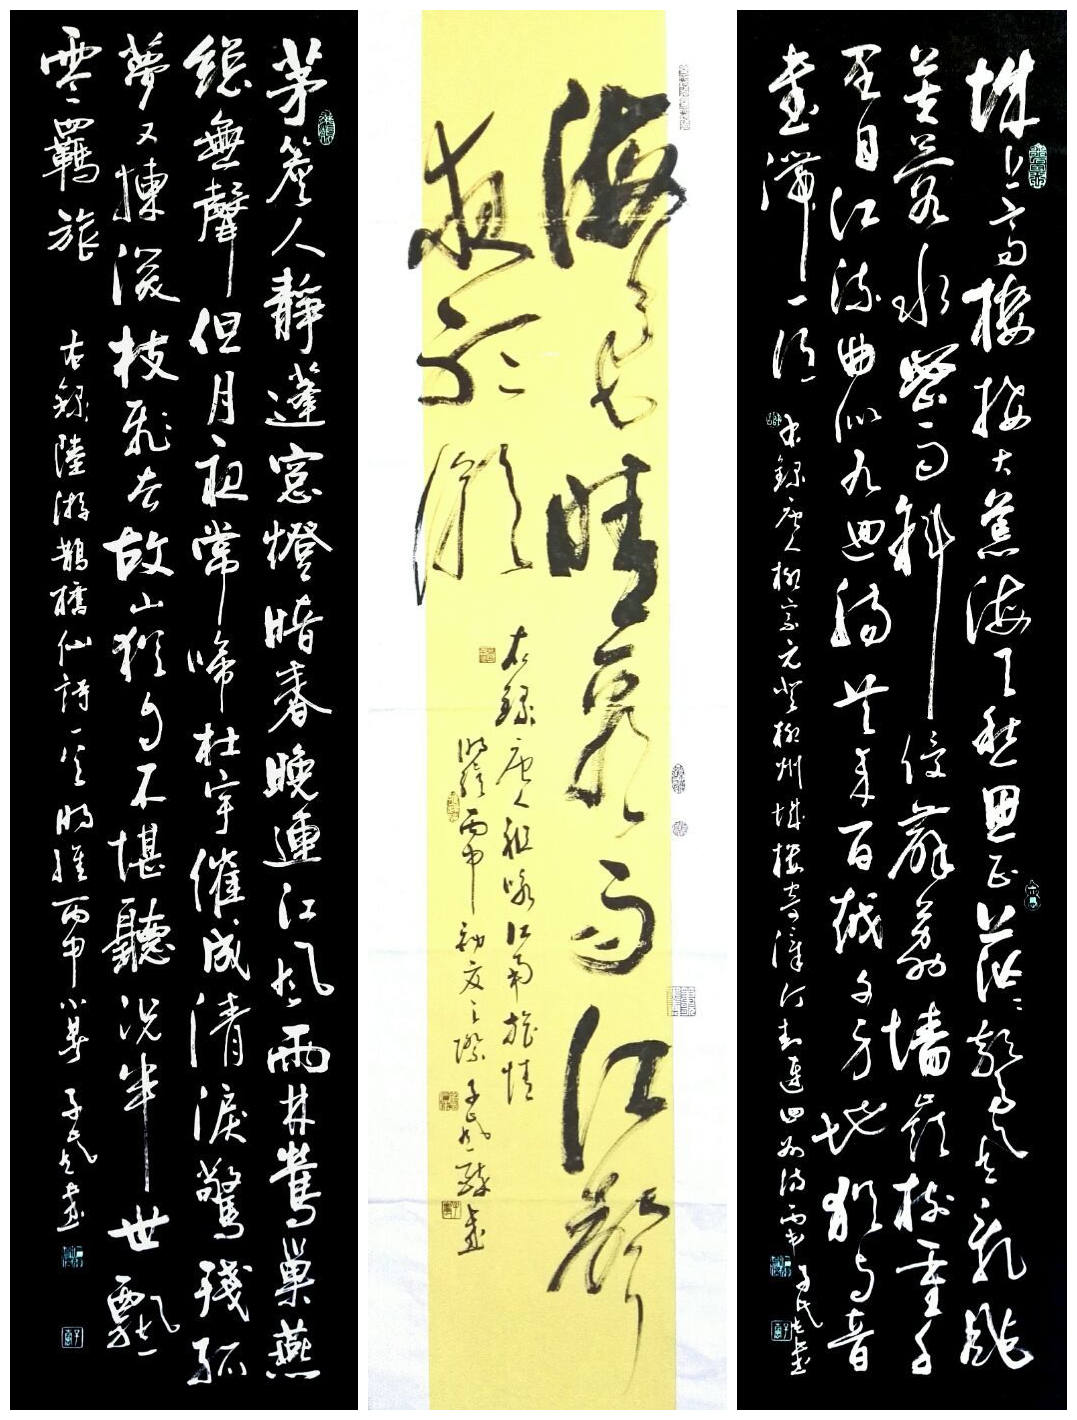 城上高樓接大荒海天愁思正茫茫驚風亂颭
芙蓉水密雨斜侵薜荔墻嶺樹重遮千
里目江流曲似九迴腸共來百越文身地猶自音
書滯一鄉
右錄唐人柳宗元登柳州城樓寄漳汀封連四州詩丙申子民書
海色晴看雨江聲
夜聽潮
右錄唐人祖詠江南旅情
時維丙申初夏之際子民醉書
茅簷人靜蓬窗燈暗春晚連江風雨林鶯巢燕
總無聲但月夜常啼杜宇催成清淚驚殘孤
夢又揀深枝飛去故山猶自不堪聽況半世飄
零羈旅
右錄陸游鵲橋仙詩一首時維丙申小暑子民書